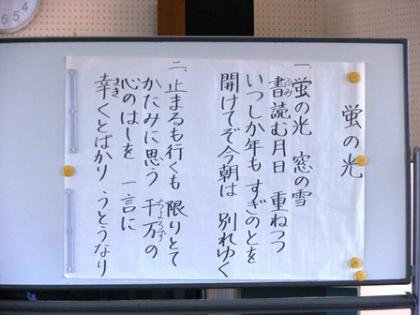 蛍の光
一、蛍の光 窓の雪
書読む月日 重ねつつ
いつしか年も すぎのとを
開けてぞ今朝は 別れゆく
二、止まるも行くも 限りとて
かたみに思う 千万の
心のはしを 一言に
幸くとばかり うとうなり